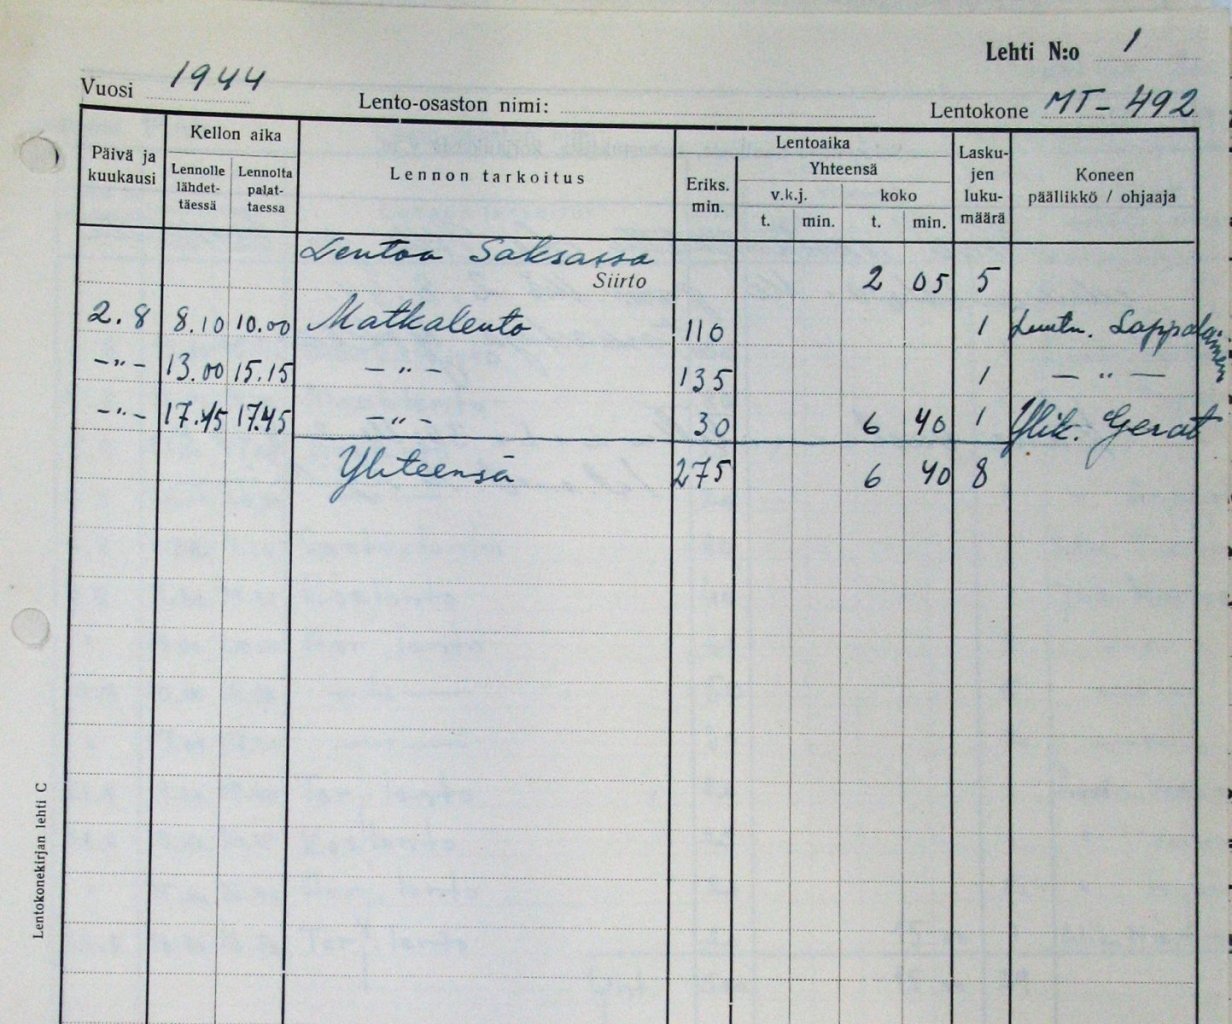 Lehti N:o 1
Vuosi 1944 Lento-osaston nimi: Lentokone MT-492
Päivä ja kuukausi
Kellon aika
Lennolle lähdet-täessä
Lennolta palat-taessa
Lennon tarkoitus
Eriks. min.
Lentoaika
Yhteensä
v.k.j. koko
t. min. t. min.
Lasku-jen luku-määrä
Koneen päällikkö / ohjaaja
Lentoa Saksassa
Siirto 2 05 5
2.8 8.10 10.00 Matkalento 110 1 Luutn. Lappalainen
-"- 13.00 15.15 -"- 135 1 -"-
-"- 17.15 17.45 -"- 30 6 40 1 Ylik. Gerat
Yhteensä 275 6 40 8
Lentokonekirjan lehti C